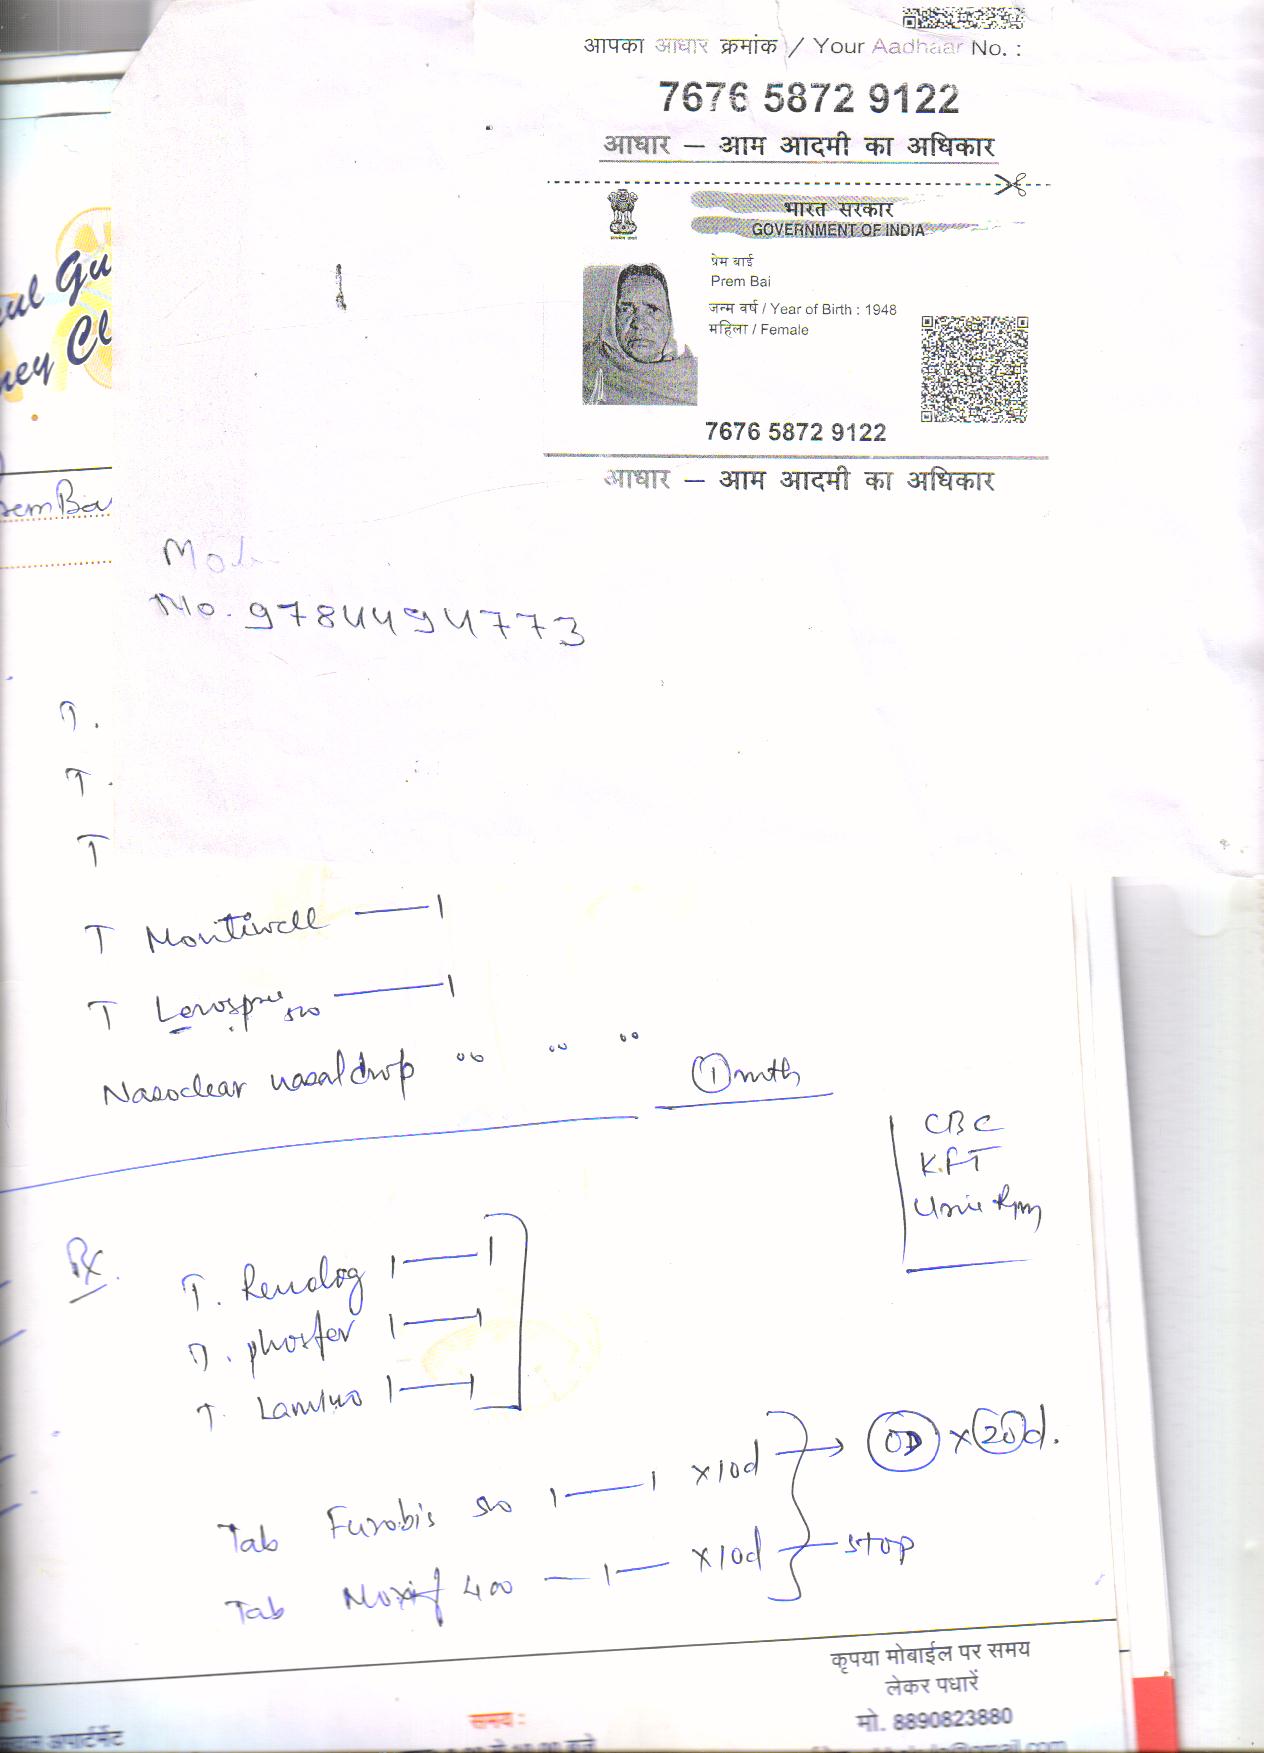 आपका आधार क्रमांक / Your Aadhaar No. :
7676 5872 9122
आधार – आम आदमी का अधिकार
भारत सरकार
GOVERNMENT OF INDIA
प्रेम बाई
Prem Bai
जन्म वर्ष / Year of Birth : 1948
महिला / Female
7676 5872 9122
आधार – आम आदमी का अधिकार
Mob
No. 9784494773
T.
T.
T
T Montiwell —— 1
T —— 1
Nasoclear nasal drop
① mth
CBC
KFT
Urine
Rx.
T. Renolog 1 —— 1
T. phosfer 1 —— 1
T. 1 —— 1
Tab Furobis 500 1 —— 1 x10d → OD x 20d.
Tab Moxif 400 — 1 — x10d — stop
कृपया मोबाईल पर समय
लेकर पधारें
मो. 8890823880
समय :